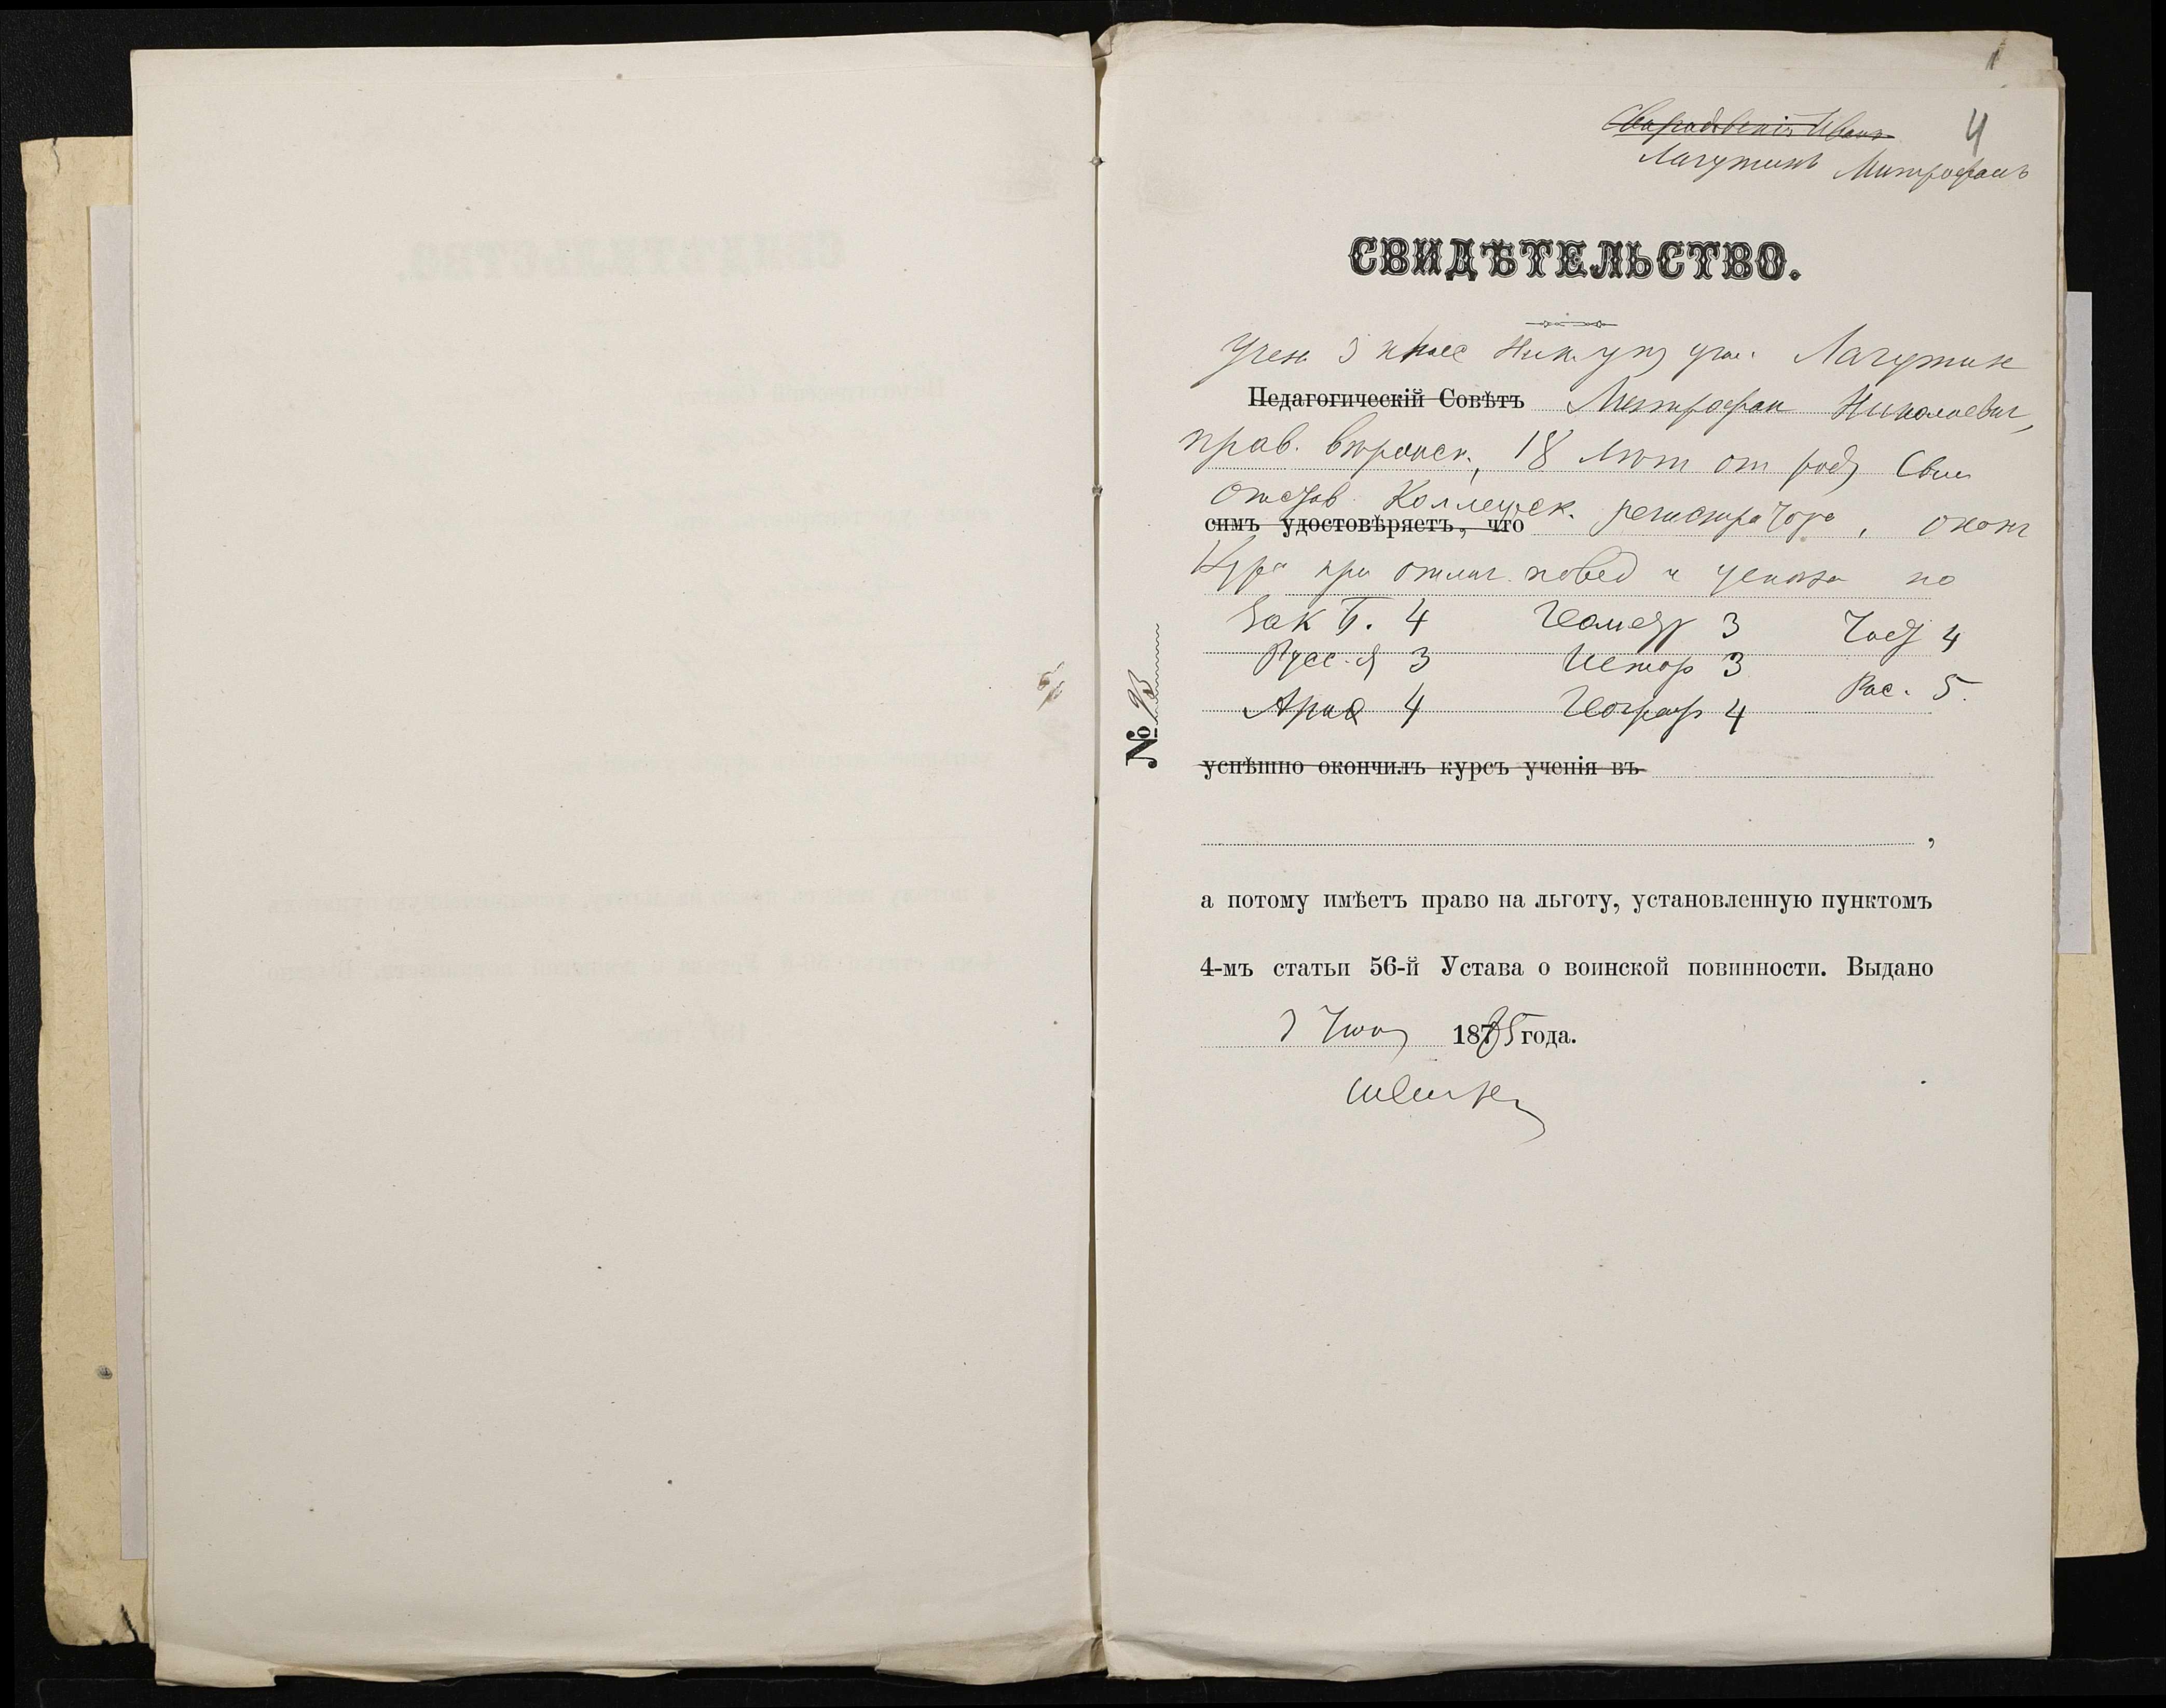 4
Лагутинъ Митрофанъ
СВИДѢТЕЛЬСТВО.
Учен 3 клас уч. Лагутин
Педагогическій Совѣтъ Митрофан Николаевич,
прав. 18 лѣт от роду Сын
отстав Коллежск. регистратора, оконч
симъ удостовѣряетъ, что
Курс при отлич. повед и успѣха по
Зак Б. 4 Геометр 3 Чист 4
Русс. я 3 Истор 3
Рис. 5.
Ариѳ 4 Географ 4
№ 93
успѣшно окончилъ курсъ ученія въ
,
а потому имѣетъ право на льготу, установленную пунктомъ
4-мъ статьи 56-й Устава о воинской повинности. Выдано
1885 года.